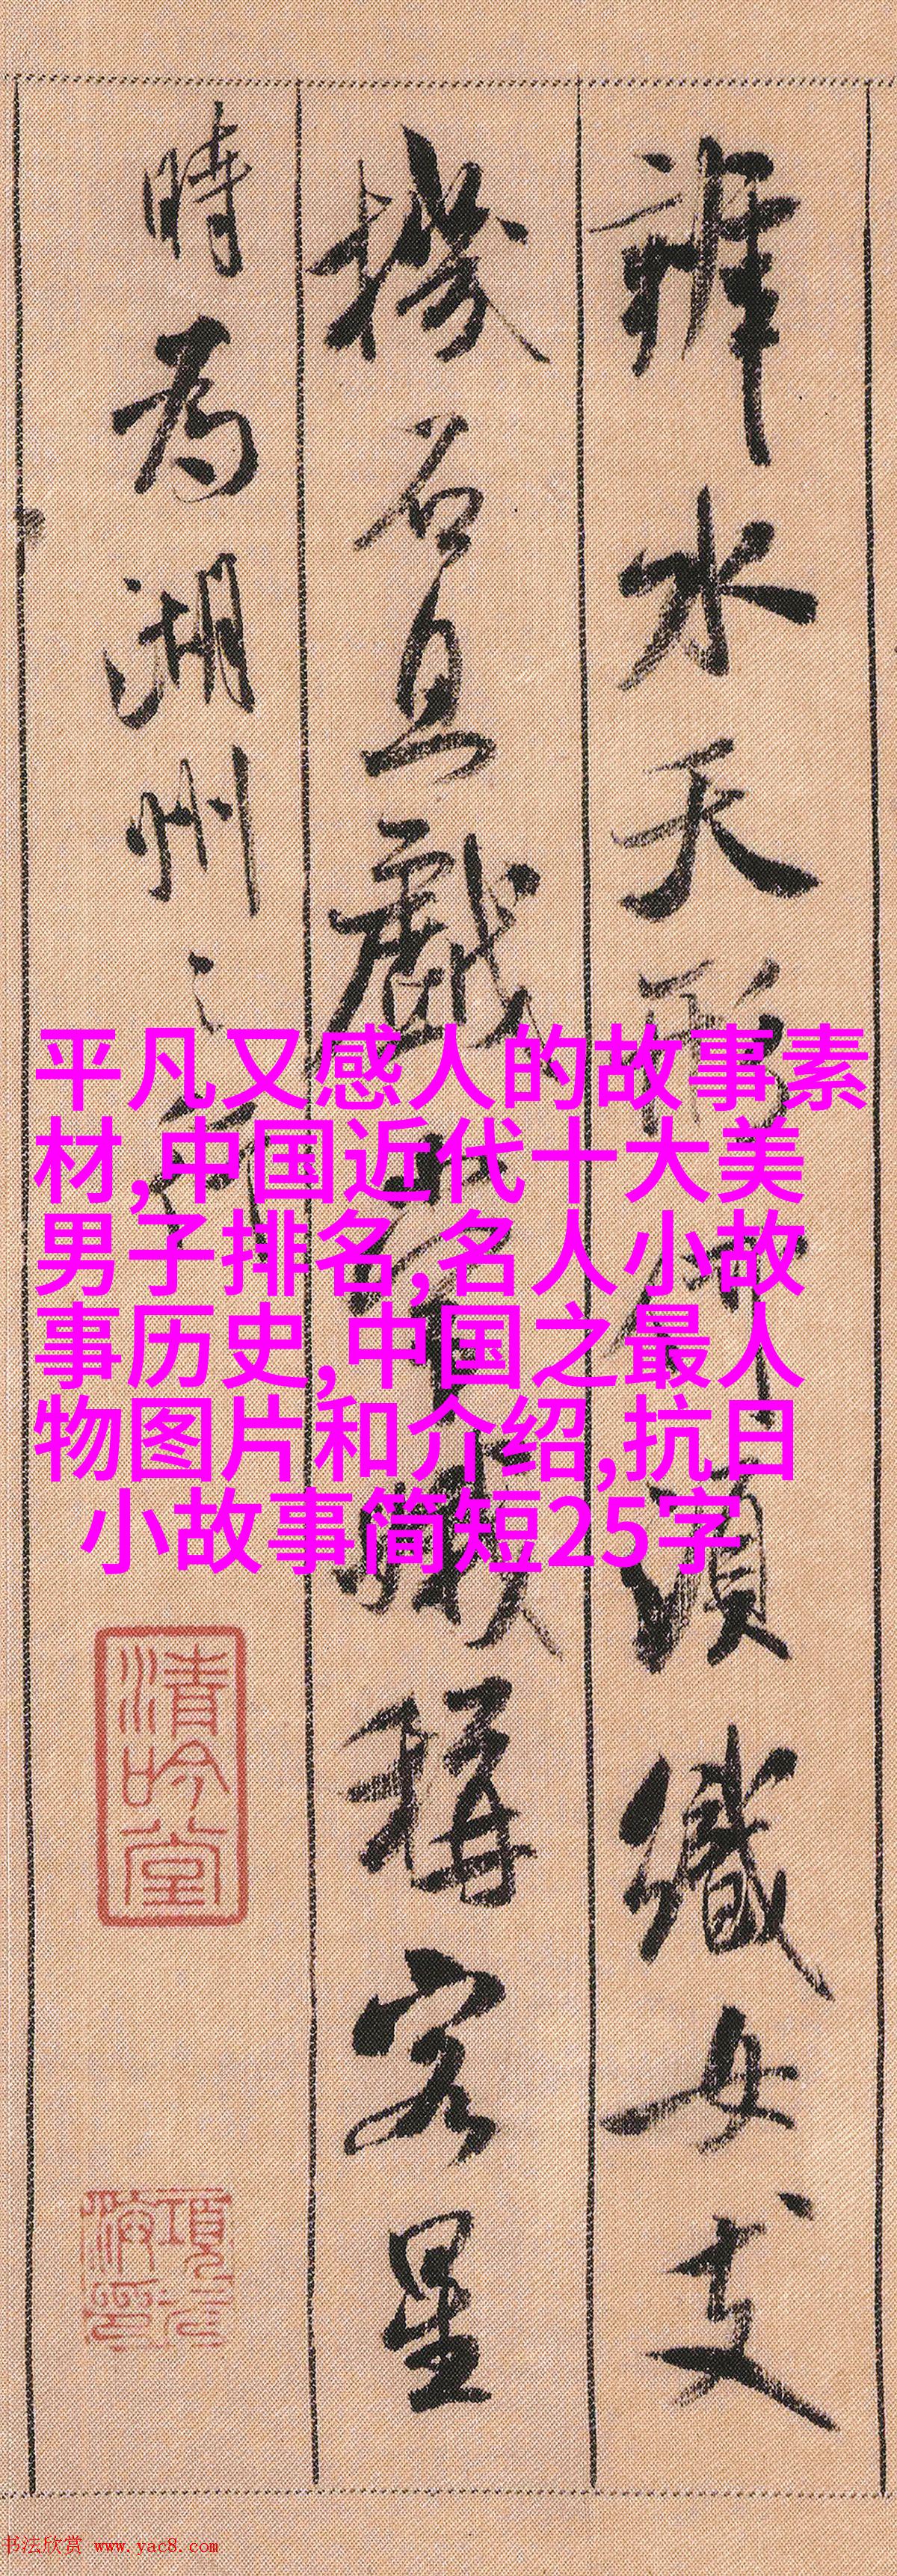 辨水天形何須織女支
機石且戲常娥稱客星
時為湖州之行
平凡又感人的故事素
材,中国近代十大美
男子排名,名人小故
事历史,中国之最人
物图片和介绍,抗日
小故事简短25字
清吟堂
书法欣赏 www.yac8.com